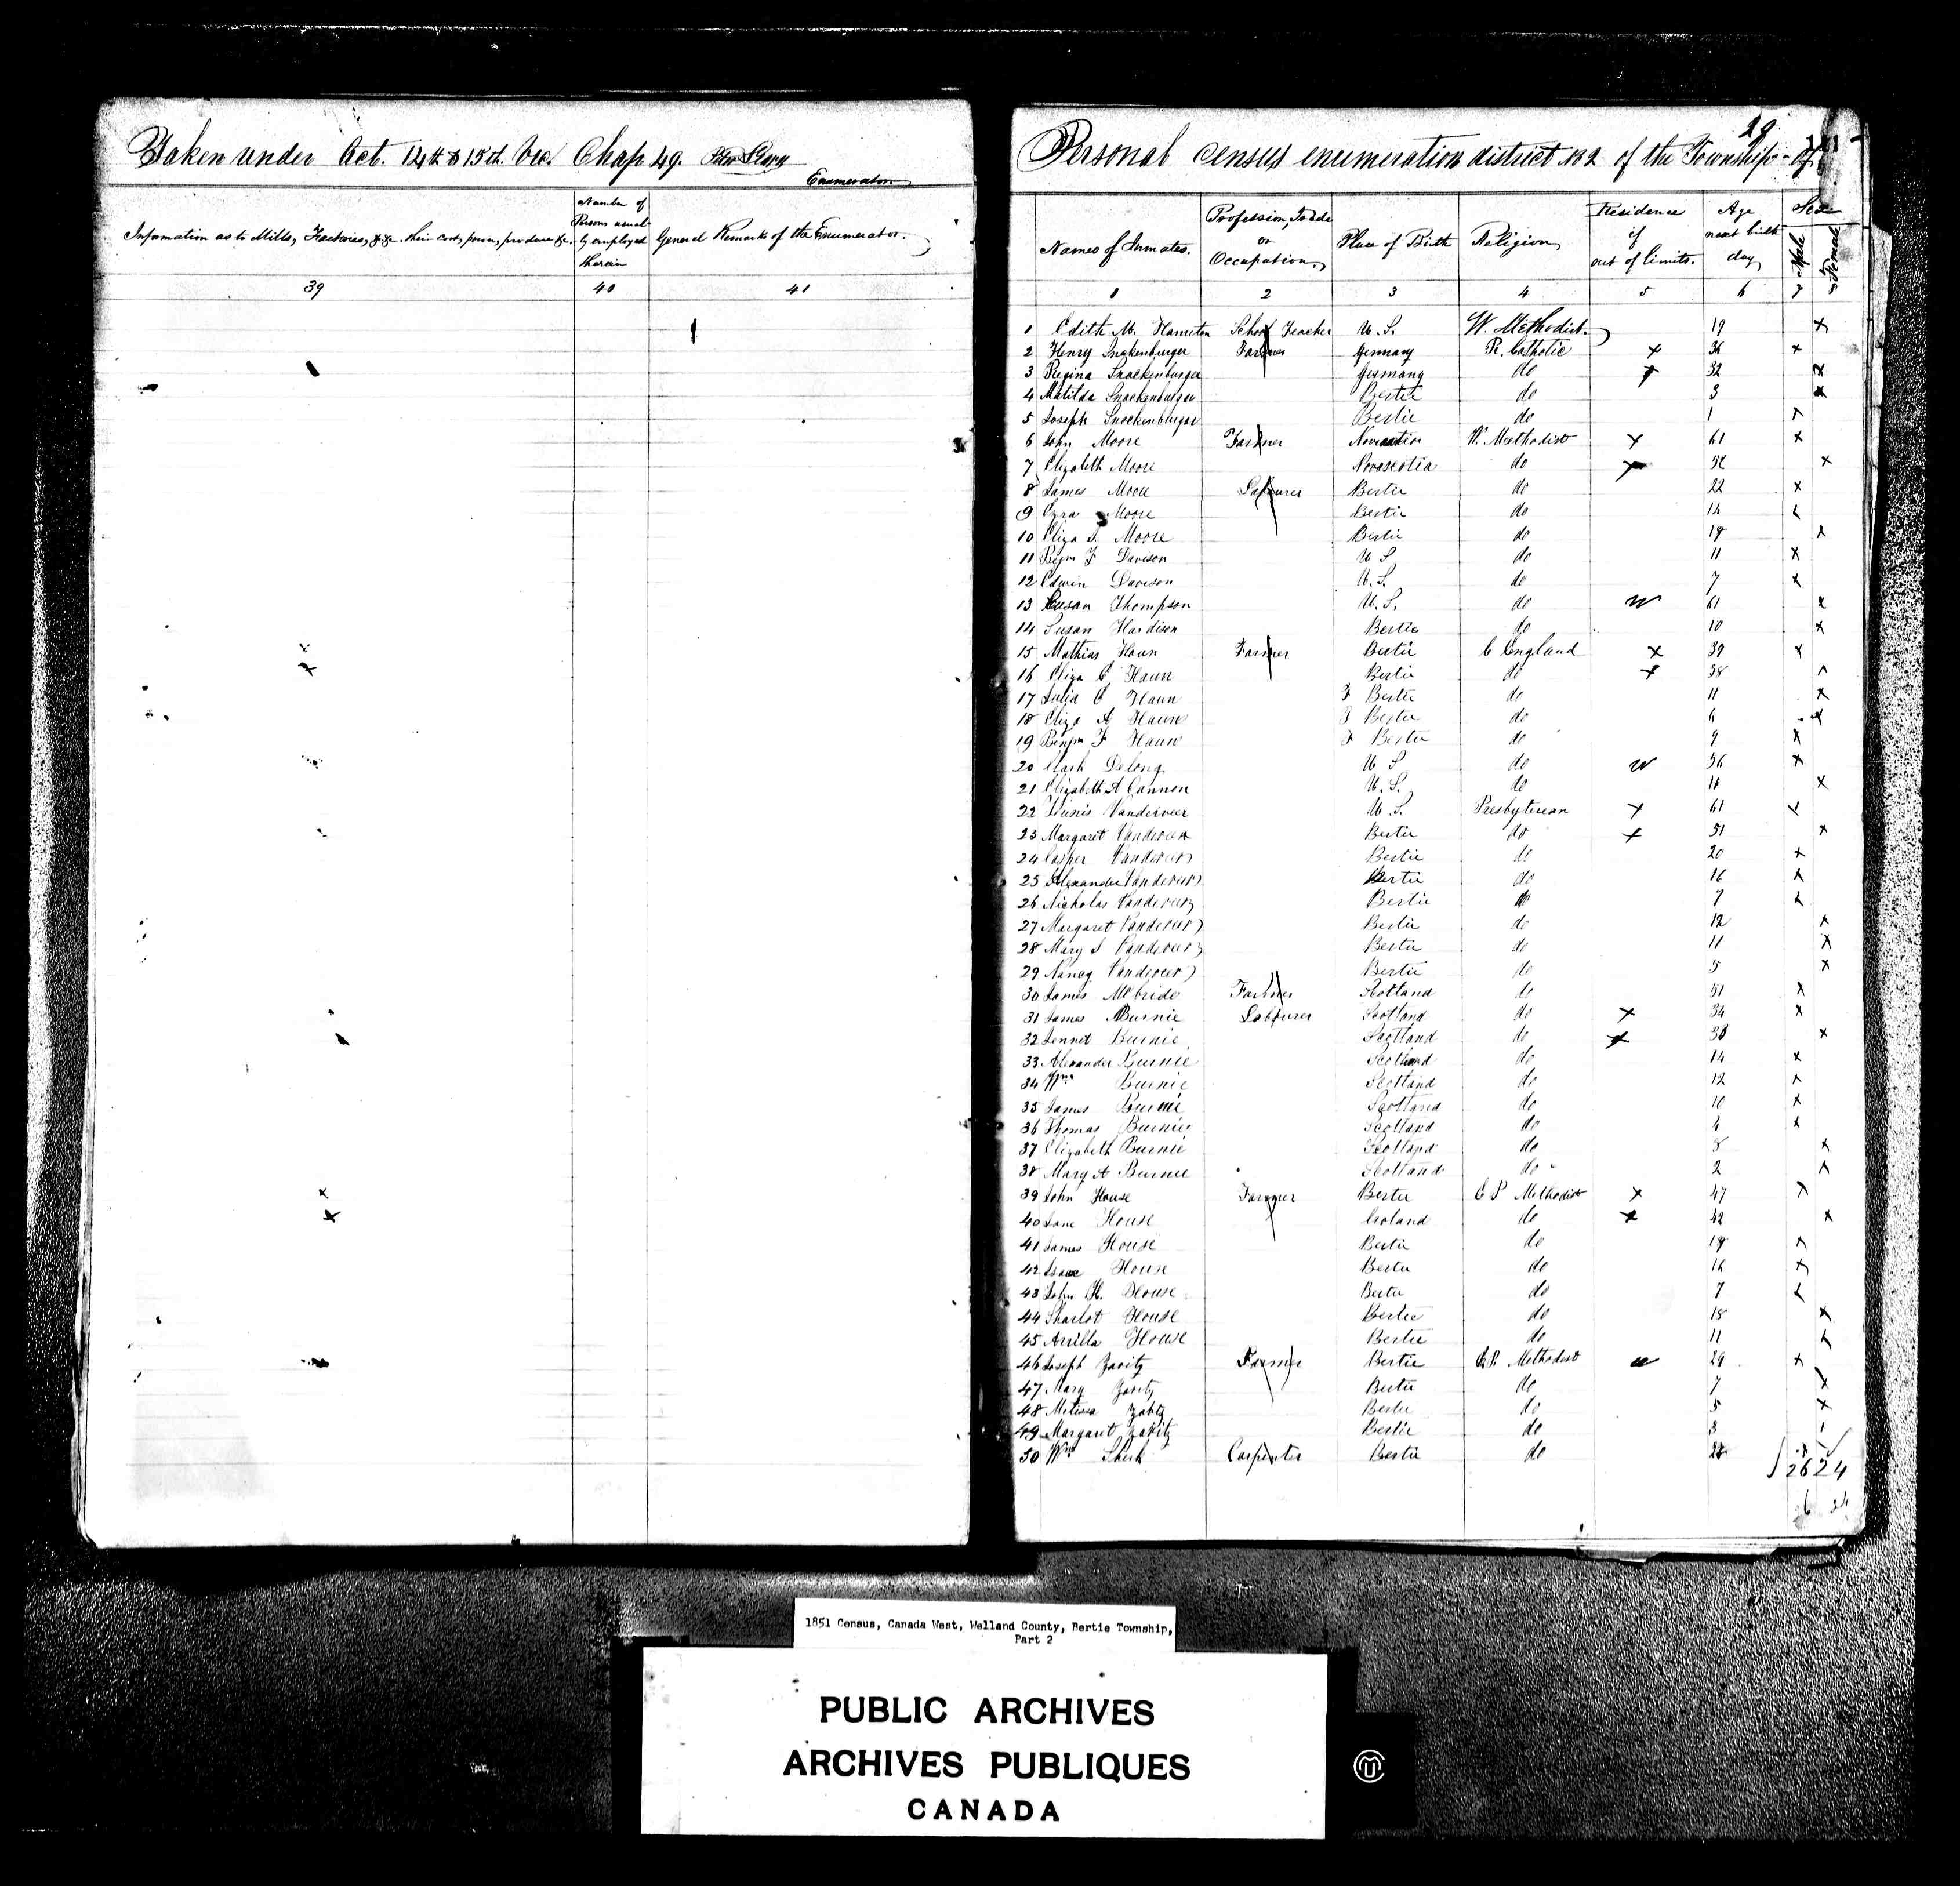 Taken under Act. 14th & 15th. Vic. Chap 49.
Enumerator
Information as to Mills, Factories, &c &c. their cost, power, produce &c.
Number of Persons usually employed therein
General Remarks of the Enumerator.
39 40 41
29
Personal census enumeration district No 2 of the Township of
Names of Inmates. Profession, Trade or Occupation, Place of Birth Religion, Residence if out of limits. Age next birth day, Sex Male Female
1 2 3 4 5 6 7 8
1 Edith M. Hamilton School Teacher U. S. W. Methodist. 19 x
2 Henry Farmer Germany R. Catholic x 36 x
3 Regina Snockenburger Germany do x 32 x
4 Matilda Snockenburger Bertie do 3 x
5 Joseph Snockenburger Bertie do 1 x
6 John Moore Farmer W. Methodist x 61 x
7 Elizabeth Moore Novascotia do x 52 x
8 James Moore Labourer Bertie do 22 x
9 Ezra Moore Bertie do 14 x
10 Eliza J. Moore Bertie do 18 x
11 Benjm F Davison U S do 11 x
12 Edwin Davison U. S. do 7 x
13 Susan Thompson U. S. do w 61 x
14 Susan Hardison Bertie do 10 x
15 Mathias Haun Farmer Bertie C England x 39 x
16 Eliza C Haun Bertie do x 38 x
17 Julia C Haun Bertie do 11 x
18 Eliza A Haun Bertie do 6 x
19 Benjm F Haun Bertie do 9 x
20 Delong U S do w 36 x
21 Elizabeth A Cannon U. S. do 11 x
22 Vanderveer U. S. Presbyterian x 61 x
23 Margaret Vanderveer Bertie do x 51 x
24 Casper Vanderveer Bertie do 20 x
25 Alexander Vanderveer Bertie do 16 x
26 Nicholas Vanderveer Bertie do 7 x
27 Margaret Vanderveer Bertie do 12 x
28 Mary J Vanderveer Bertie do 11 x
29 Nancy Vanderveer Bertie do 5 x
30 James McBride Farmer Scotland do 51 x
31 James Burnie Labourer Scotland do x 34 x
32 Jennet Burnie Scotland do x x
33 Alexander Burnie Scotland do 14 x
34 Wm Burnie Scotland do 12 x
35 James Burnie Scotland do 10 x
36 Thomas Burnie Scotland do 4 x
37 Elizabeth Burnie Scotland do 8 x
38 Mary A Burnie Scotland do 2 x
39 John House Farmer Bertie E P Methodist x 47 x
40 Jane House Ireland do x 42 x
41 James House Bertie do 18 x
42 Isaac House Bertie do 16 x
43 John H. House Bertie do 7 x
44 Sharlot House Bertie do 15 x
45 Arrilla House Bertie do 11 x
46 Joseph Zavitz Farmer Bertie E P. Methodist w 29 x
47 Mary Zavitz Bertie do 7 x
48 Zavitz Bertie do 5 x
49 Margaret Zavitz Bertie do 3
50 Wm Sherk Carpenter Bertie do x
26 24
26 24
1851 Census, Canada West, Welland County, Bertie Township,
Part 2
PUBLIC ARCHIVES
ARCHIVES PUBLIQUES
CANADA